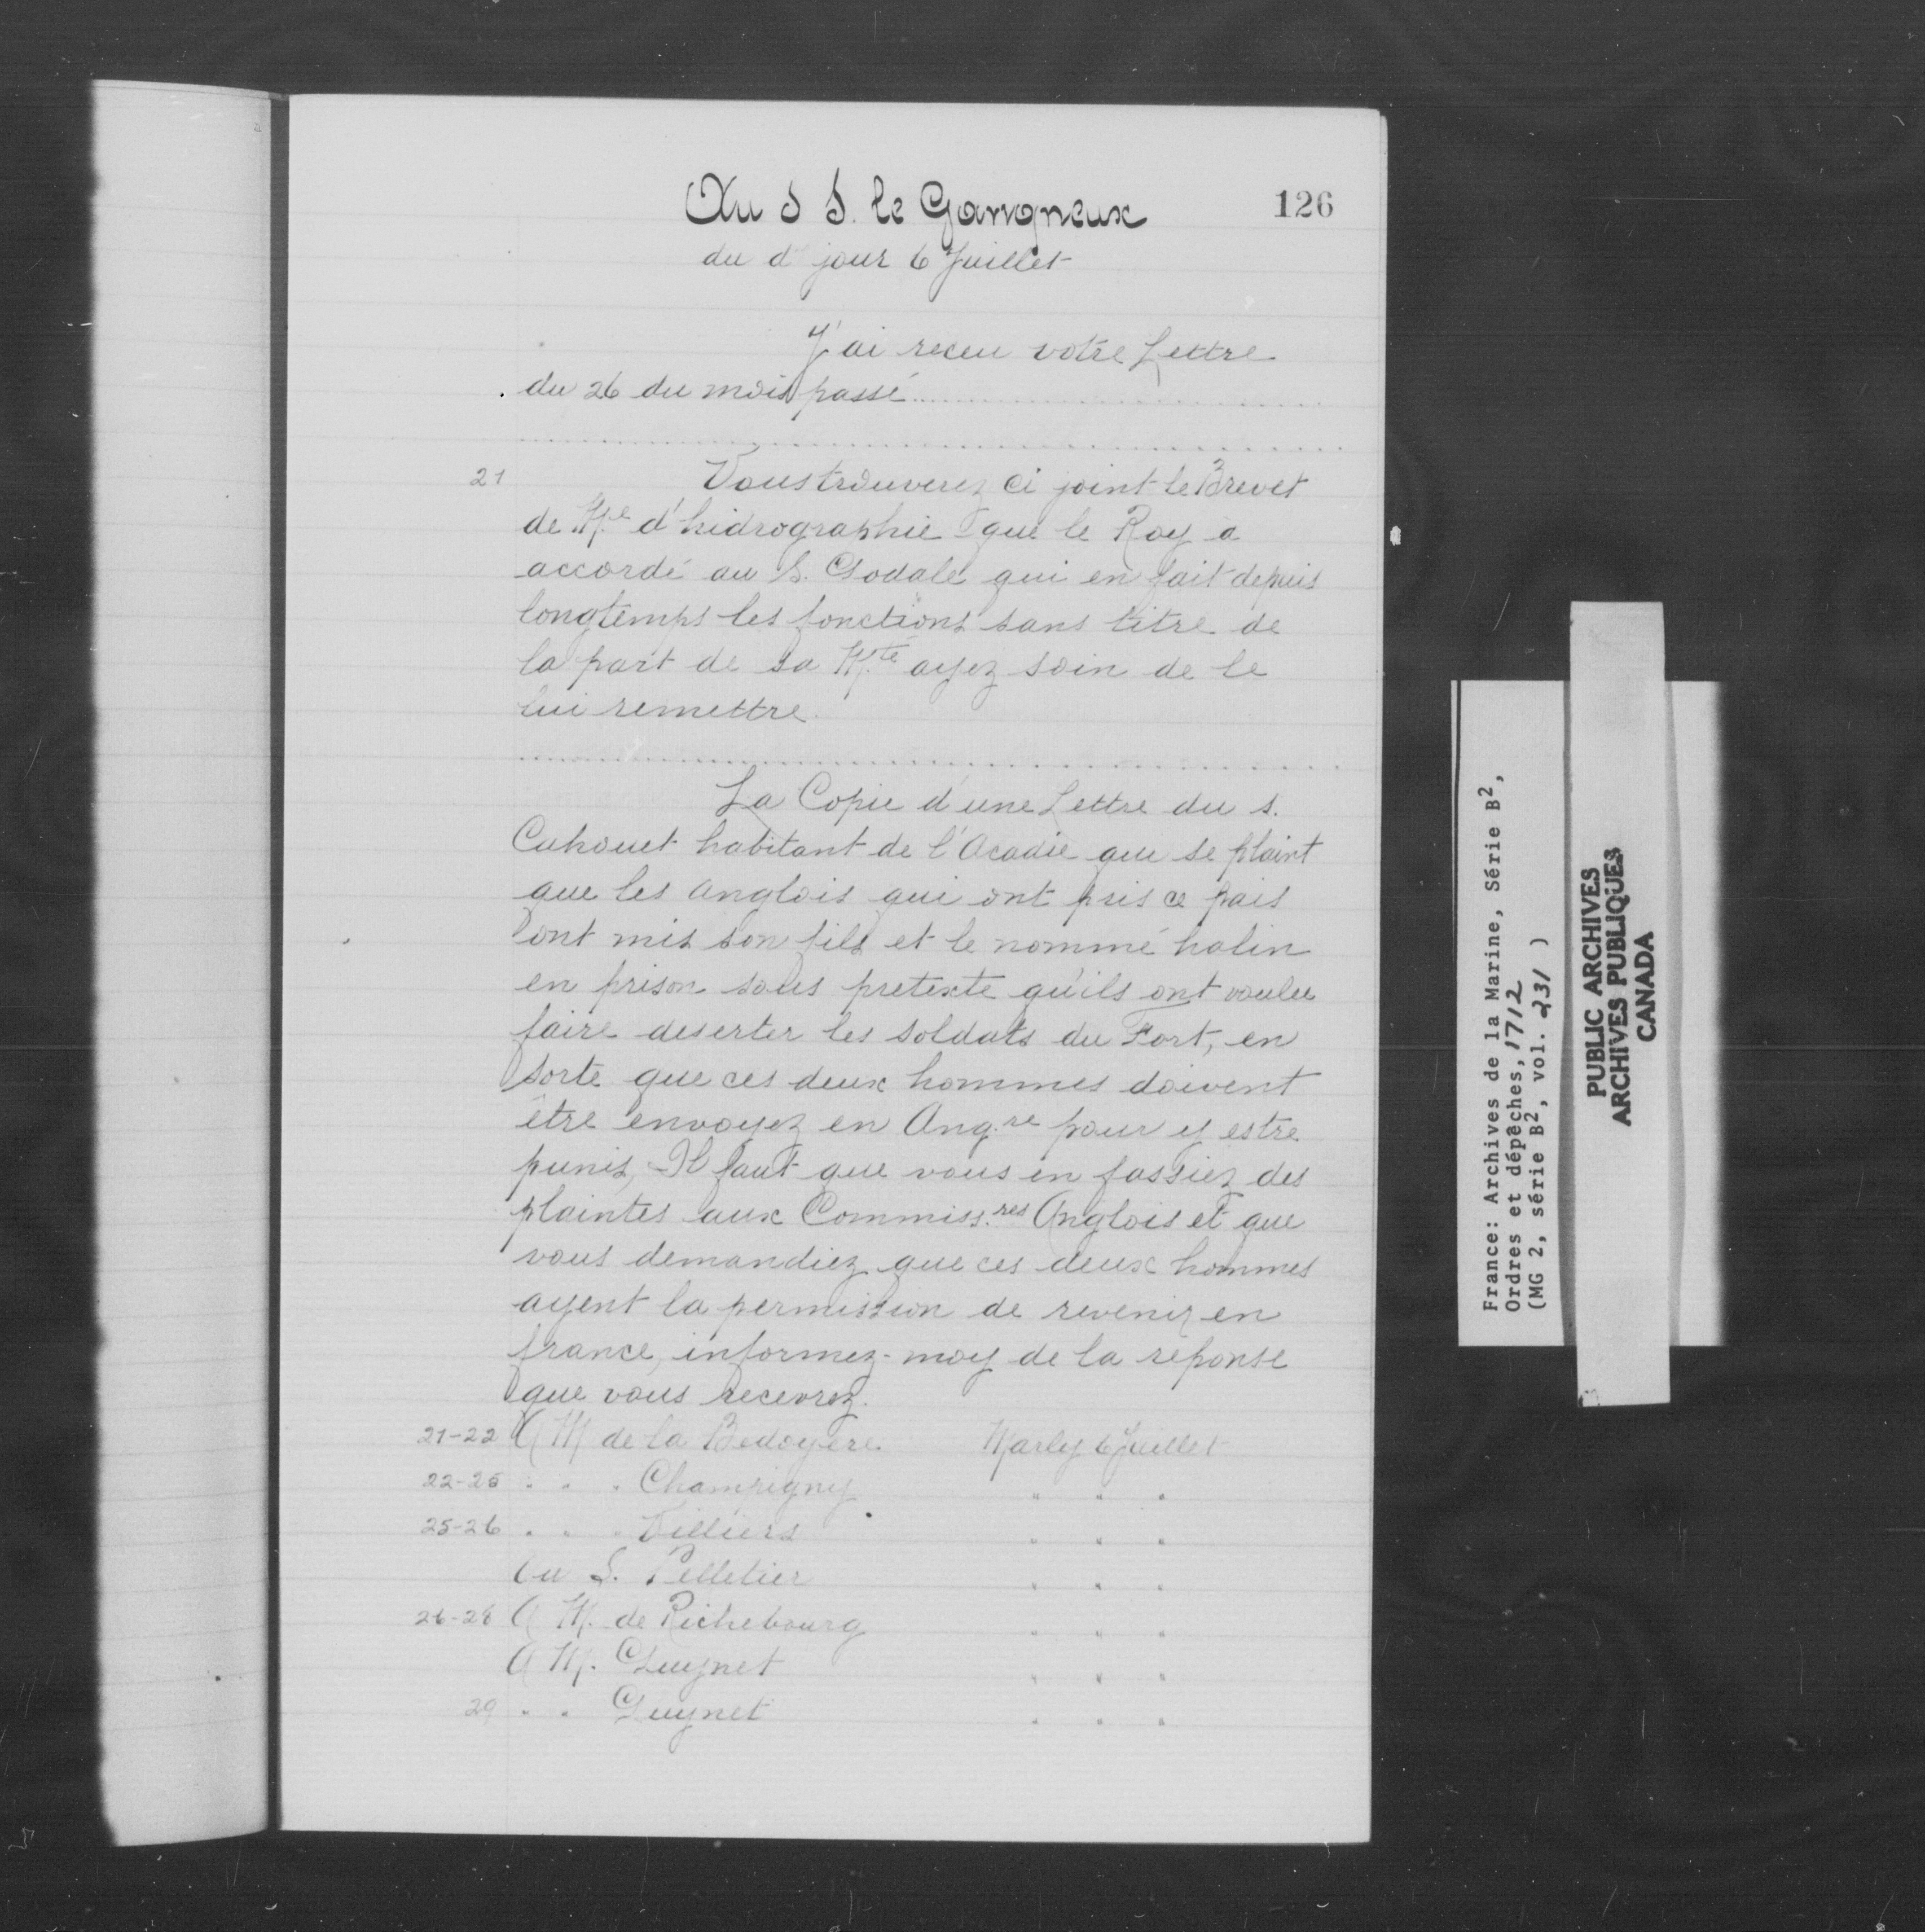 126
Au S S. le Gangneux
du d jour 6 Juillet
J'ai receu votre Lettre
du 26 du mois passé
21 Vous trouverez ci joint le Brevet
de Me d'hidrographie que le Roy a
accordé au S. Godale qui en fait depuis
longtemps les fonctions sans titre de
la part de sa Mté ayez soin de le
lui remettre.
La Copie d'une Lettre du s.
Cahouet habitant de l'Acadie que se plaint
que les anglois qui ont pris ce pais
ont mis son fils et le nommé halin
en prison sous pretexte qu'ils ont voulu
faire deserter les soldats du Fort, en
sorte que ces deux hommes doivent
être envoyez en Ang.re pour y estre
punis, Il faut que vous en fassiez des
plaintes aux Commiss.res Anglois et que
vous demandiez que ces deux hommes
ayent la permission de revenir en
france, informez-moy de la reponse
que vous recevrez.
21-22 A M de la Bedoyere Marly 6 Juillet
22-25 " " " Champigny " " "
25-26 " " " Villiers " " "
Au S. Pelletier " " "
26-28 A M. de Richebourg " " "
A M. Guynet " " "
29 " " Guynet " " "
France: Archives de la Marine, Série B2,
Ordres et dépêches, 1712
(MG 2, série B2, vol. 231 )
PUBLIC ARCHIVES
ARCHIVES PUBLIQUES
CANADA